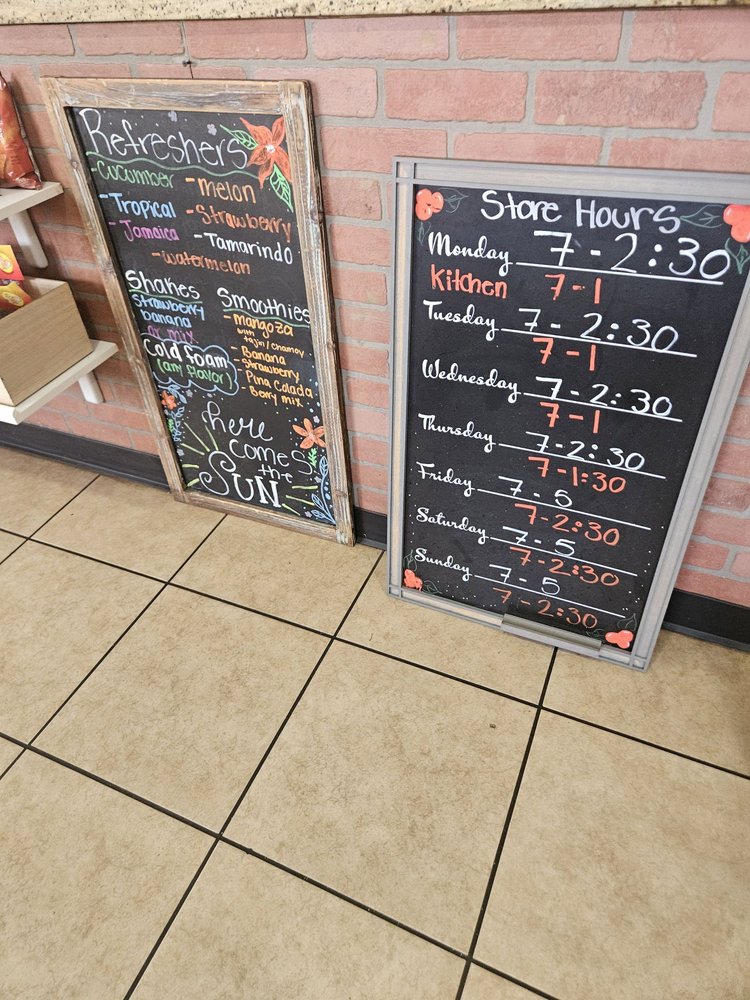 Refreshers
-Cucumber -melon
-Tropical -Strawberry
-Jamaica -Tamarindo
-watermelon
Shakes
Strawberry
banana
or mix
Cold foam
(any flavor)
Smoothies
-Mangoza
with
tajin/chamoy
-Banana
-Strawberry
-Pina Colada
-Berry mix
here
comes
the
SUN
Store Hours
Monday 7-2:30
Kitchen 7-1
Tuesday 7-2:30
7-1
Wednesday 7-2:30
7-1
Thursday 7-2:30
7-1:30
Friday 7-5
7-2:30
Saturday 7-5
7-2:30
Sunday 7-5
7-2:30